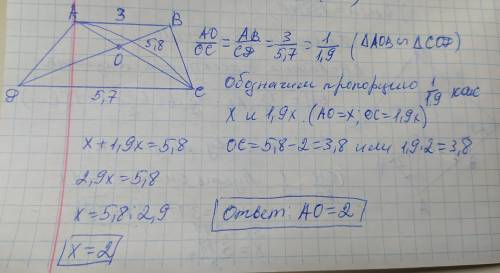 A 3 B
5,8
O
D 5,7 C
AO/OC = AB/CD = 3/5,7 = 1/1,9 (△AOB ∽ △COD)
Обозначим пропорцию 1/1,9 как
x и 1,9x. (AO=x; OC=1,9x)
x+1,9x=5,8
2,9x=5,8
x=5,8:2,9
x=2
OC=5,8-2=3,8 или 1,9·2=3,8
Ответ: AO=2